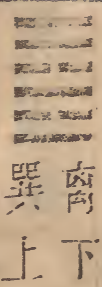 离下
巽上